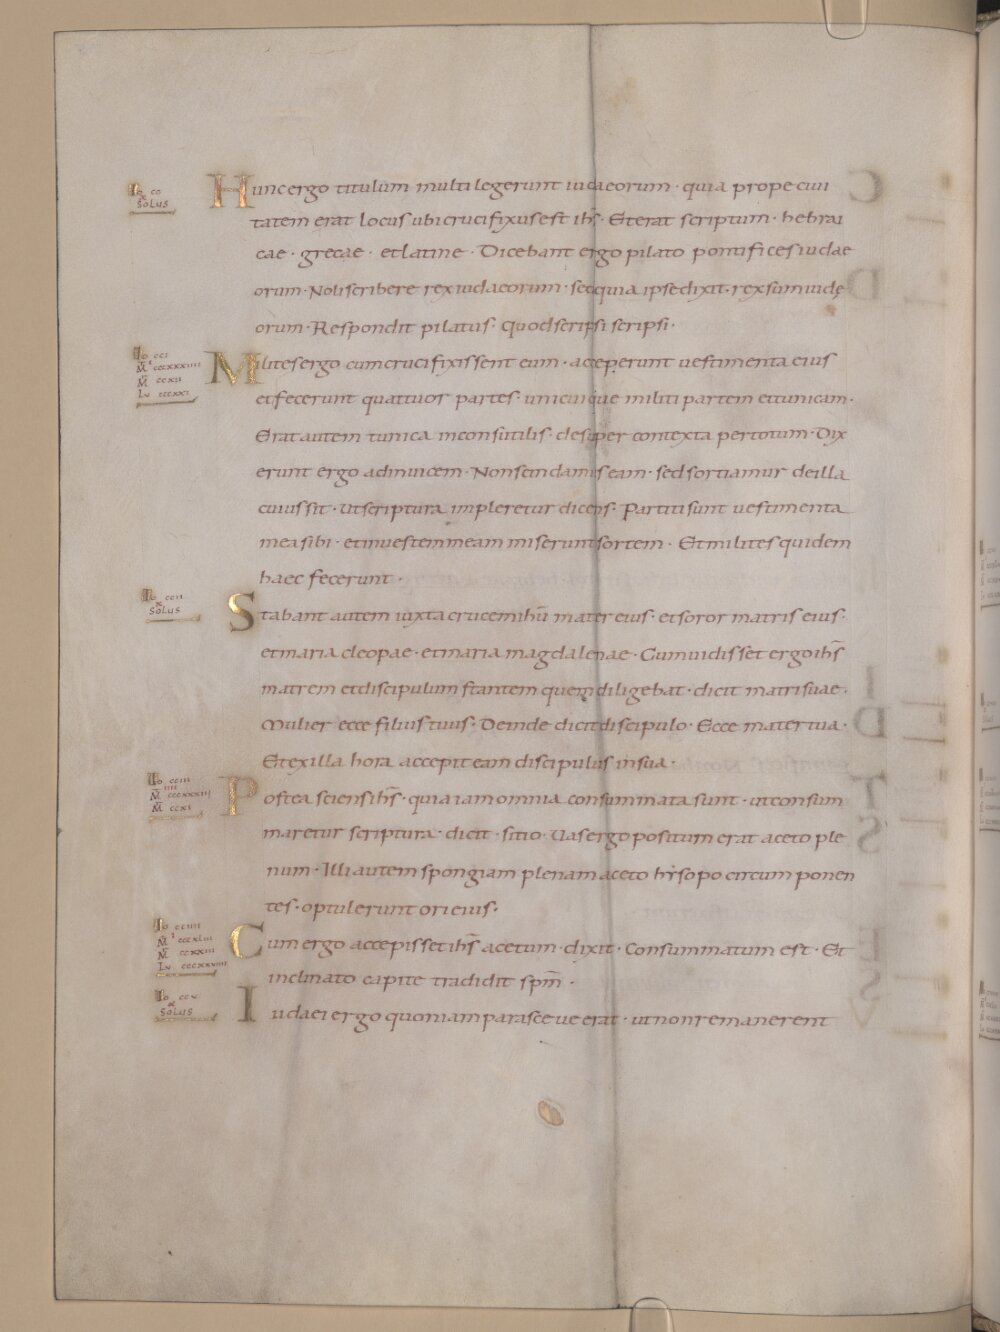 Io cc
SOLUS
Hunc ergo titulum multi legerunt iudaeorum · quia prope ciui
tatem erat locus ubi crucifixus est ihs̄ · Et erat scriptum · hebrai
cae · grecae · et latine · Dicebant ergo pilato pontifices iudae
orum · Noli scribere rex iudaeorum · sed quia ipse dixit · rex sum iudę
orum · Respondit pilatus · quod scripsi scripsi ·
Io cci
M̄
M̄ ccxii
Lu cccxxi
Milites ergo cum crucifixissent eum · acceperunt uestimenta eius
et fecerunt quattuor partes · unicuique militi partem et tunicam ·
Erat autem tunica inconsutilis · desuper contexta per totum · Dix
erunt ergo adinuicem · Non scindamus eam · sed sortiamur de illa
cuius sit · ut scriptura impleretur dicens · Partiti sunt uestimenta
mea sibi · et in uestem meam miserunt sortem · Et milites quidem
haec fecerunt ·
Io ccii
SOLUS
Stabant autem iuxta crucem ihū mater eius · et soror matris eius ·
et maria cleopae · et maria magdalenae · Cum uidisset ergo ihs̄
matrem et discipulum stantem quem diligebat · dicit matri suae ·
Mulier ecce filius tuus · Deinde dicit discipulo · Ecce mater tua ·
Et ex illa hora accepit eam discipulus in sua ·
Io cciii
M̄ cccxxxiiii
M̄ ccxi
Postea sciens ihs̄ · quia iam omnia consummata sunt · ut consum
maretur scriptura · dicit · sitio · Uas ergo positum erat aceto ple
num · Illi autem spongiam plenam aceto hysopo circumponen
tes · optulerunt ori eius ·
Io cciiii
M̄ cccxliii
M̄ ccxxiii
Lu cccxxviiii
Cum ergo accepisset ihs̄ acetum · dixit · Consummatum est · Et
inclinato capite tradidit spm̄ ·
Io ccv
SOLUS
Iudaei ergo quoniam parasceue erat · ut non remanerent